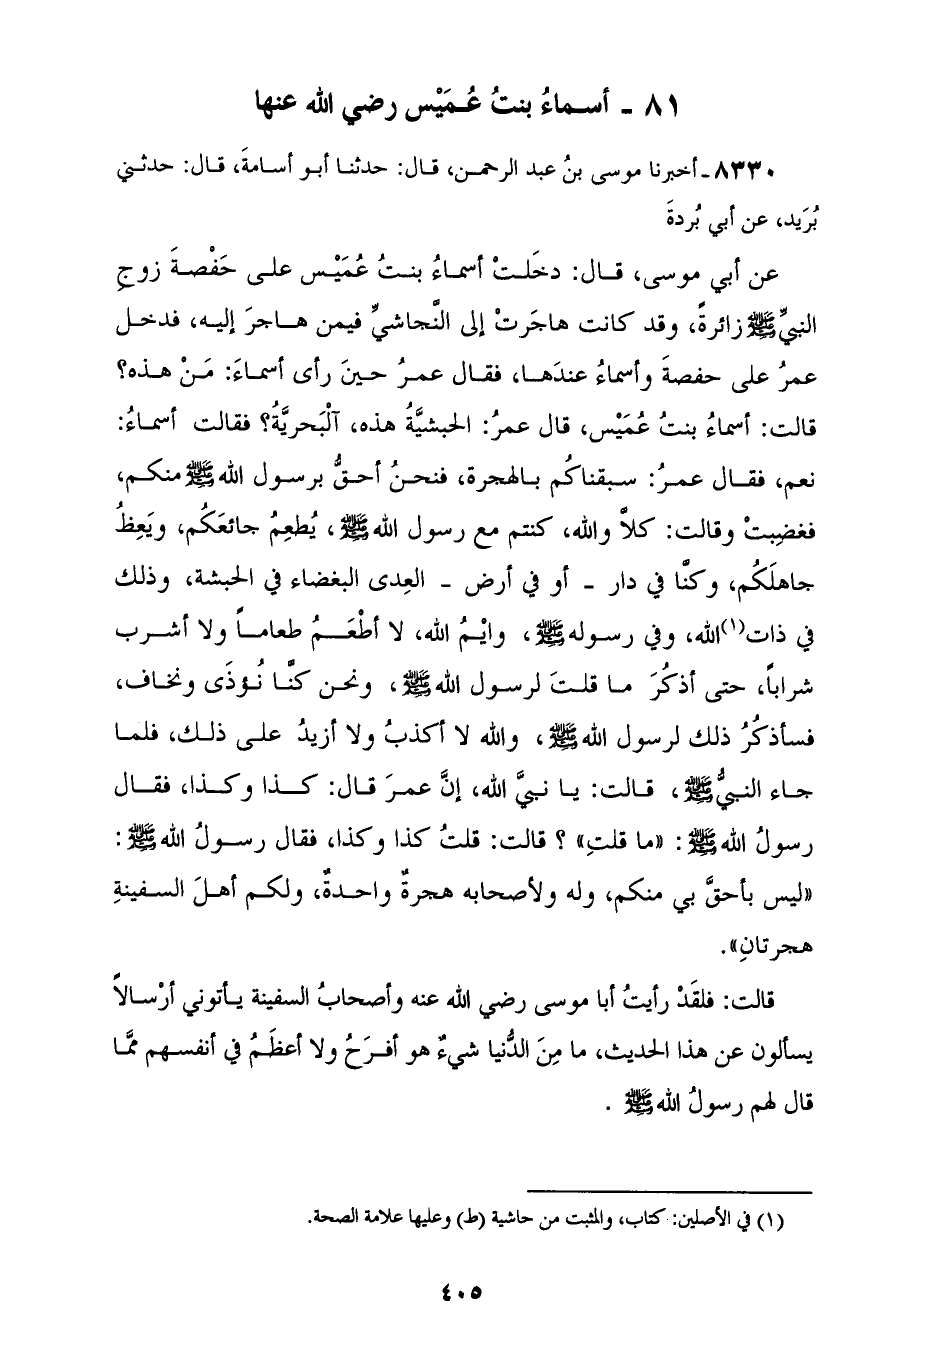 ٨١ ـ أسماءُ بنتُ عُمَيْس رضي الله عنها
٨٣٣٠ـ أخبرنا موسى بنُ عبد الرحمن، قال: حدثنا أبو أسامةَ، قال: حدثني
بُرَيد، عن أبي بُردةَ
عن أبي موسى، قال: دخَلتْ أسماءُ بنتُ عُمَيْس على حَفْصةَ زوجِ
النبيِّ ﷺ زائرةً، وقد كانت هاجَرتْ إلى النَّجاشيِّ فيمن هاجرَ إليه، فدخل
عمرُ على حفصةَ وأسماءُ عندَها، فقال عمرُ حينَ رأى أسماءَ: مَنْ هذه؟
قالت: أسماءُ بنتُ عُمَيْس، قال عمرُ: الحبشيَّةُ هذه، آلْبَحريَّةُ؟ فقالت أسماءُ:
نعم، فقال عمرُ: سبقناكُم بالهجرة، فنحنُ أحقُّ برسول الله ﷺ منكم،
فغضِبتْ وقالت: كلاَّ والله، كنتم مع رسول الله ﷺ، يُطعِمُ جائعَكُم، ويَعِظُ
جاهلَكُم، وكنَّا في دار ـ أو في أرض ـ العِدى البغضاء في الحبشة، وذلك
في ذات(١) الله، وفي رسوله ﷺ، وايْمُ الله، لا أطْعَمُ طعاماً ولا أشرب
شراباً، حتى أذكُرَ ما قلتَ لرسول الله ﷺ، ونحن كنَّا نُؤذَى ونخاف،
فسأذكُرُ ذلك لرسول الله ﷺ، والله لا أكذبُ ولا أزيدُ على ذلك، فلما
جاء النبيُّ ﷺ، قالت: يا نبيَّ الله، إنَّ عمرَ قال: كذا وكذا، فقال
رسولُ الله ﷺ: «ما قلتِ» ؟ قالت: قلتُ كذا وكذا، فقال رسولُ الله ﷺ:
«ليس بأحقَّ بي منكم، وله ولأصحابه هجرةٌ واحدةٌ، ولكم أهلَ السفينةِ
هجرتانِ».
قالت: فلقَدْ رأيتُ أبا موسى رضي الله عنه وأصحابُ السفينة يأتوني أرْسالاً
يسألون عن هذا الحديث، ما مِنَ الدُّنيا شيءٌ هو أفرَحُ ولا أعظَمُ في أنفسهم ممَّا
قال لهم رسولُ الله ﷺ .
(١) في الأصلين: كتاب، والمثبت من حاشية (ط) وعليها علامة الصحة.
٤٠٥